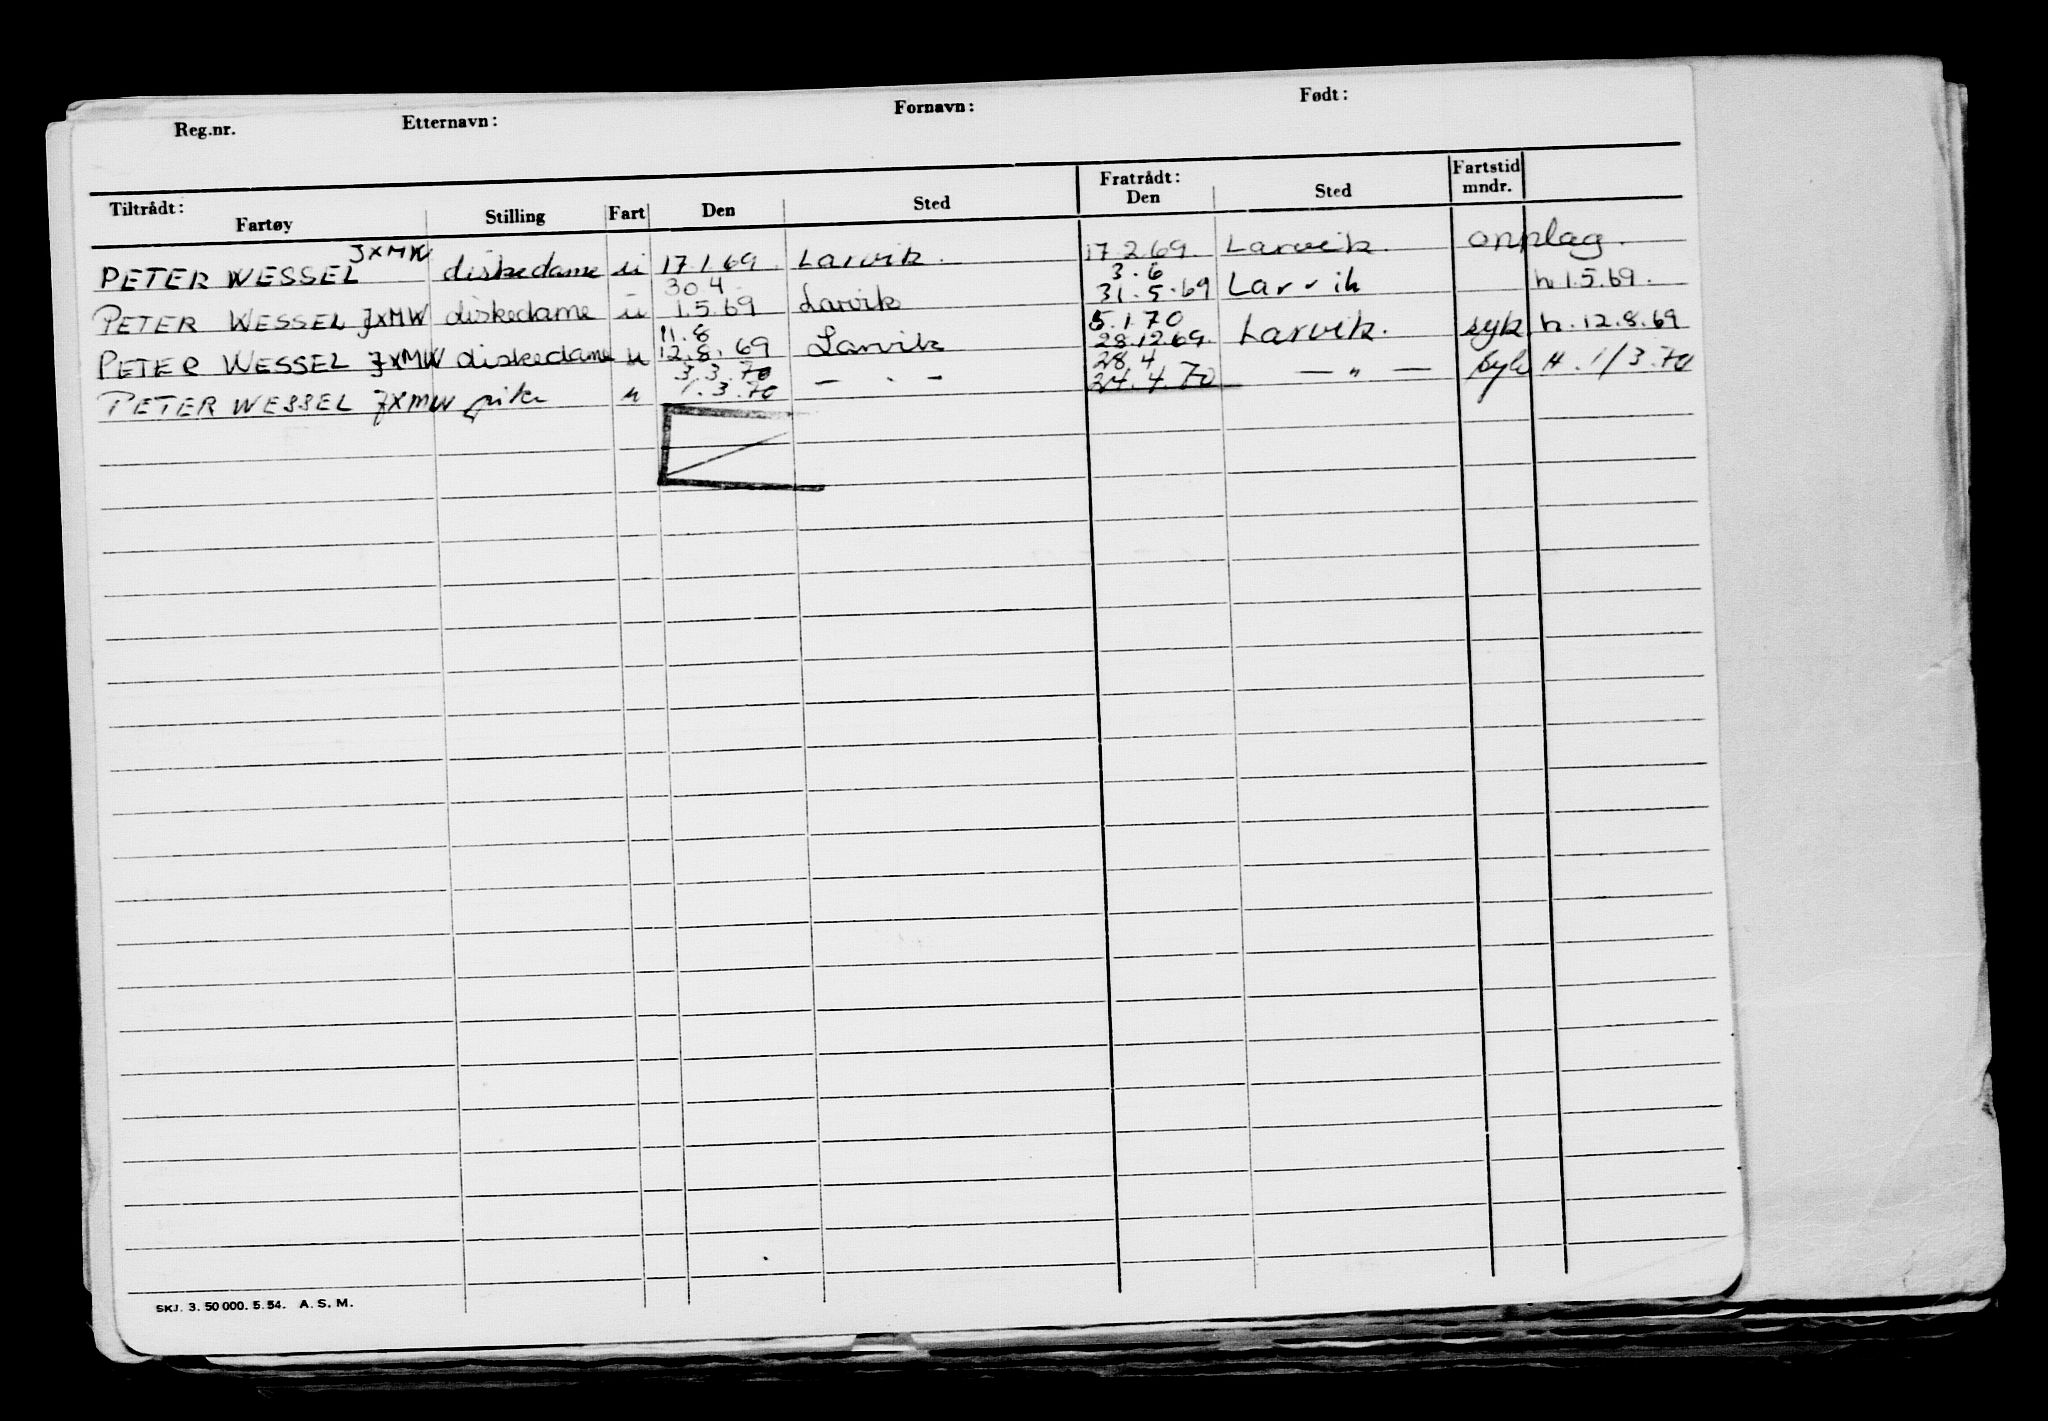 Reg.nr. Etternavn: Fornavn: Født:
Tiltrådt: Fratrådt: Fartstid
Fartøy Stilling Fart Den Sted Den Sted mndr.
JXMW
PETER WESSEL diskedame u 17.1.69. Larvik. 17.2.69. Larvik. opplag.
30.4 3.6
PETER WESSEL JXMW diskedame u 1.5.69 Larvik 31.5.69 Larvik h 1.5.69.
11.8 5.1.70
PETER WESSEL JXMW diskedame u 12.8.69 Larvik 28.12.69. Larvik. syk h. 12.8.69
3.3.70 28.4
PETER WESSEL JXMW pike u 1.3.70 — . — 24.4.70 — " — syk H. 1/3.70
SKJ. 3. 50 000. 5. 54. A. S. M.